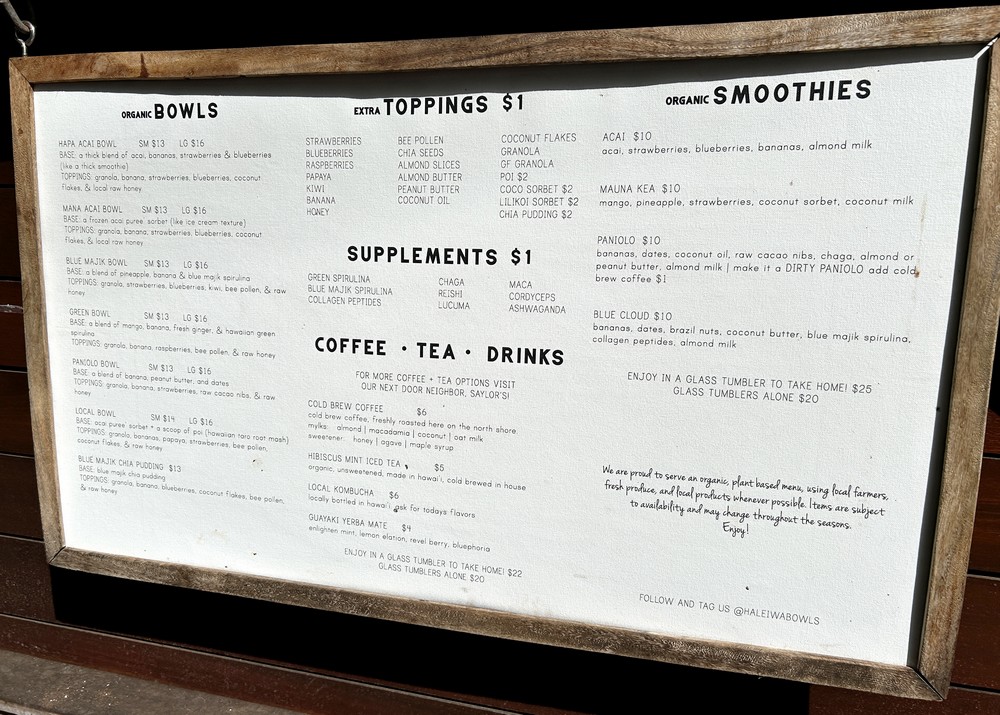 ORGANIC BOWLS
HAPA ACAI BOWL SM $13 LG $16
BASE: a thick blend of acai, bananas, strawberries & blueberries
(like a thick smoothie)
TOPPINGS: granola, banana, strawberries, blueberries, coconut
flakes, & local raw honey
MANA ACAI BOWL SM $13 LG $16
BASE: a frozen acai puree sorbet (like ice cream texture)
TOPPINGS: granola, banana, strawberries, blueberries, coconut
flakes, & local raw honey
BLUE MAJIK BOWL SM $13 LG $16
BASE: a blend of pineapple, banana & blue majik spirulina
TOPPINGS: granola, strawberries, blueberries, kiwi, bee pollen, & raw
honey
GREEN BOWL SM $13 LG $16
BASE: a blend of mango, banana, fresh ginger, & hawaiian green
spirulina
TOPPINGS: granola, banana, raspberries, bee pollen, & raw honey
PANIOLO BOWL SM $13 LG $16
BASE: a blend of banana, peanut butter, and dates
TOPPINGS: granola, banana, strawberries, raw cacao nibs, & raw
honey
LOCAL BOWL SM $14 LG $16
BASE: acai puree sorbet + a scoop of poi (hawaiian taro root mash)
TOPPINGS: granola, bananas, papaya, strawberries, bee pollen,
coconut flakes, & raw honey
BLUE MAJIK CHIA PUDDING $13
BASE: blue majik chia pudding
TOPPINGS: granola, banana, blueberries, coconut flakes, bee pollen,
& raw honey
EXTRA TOPPINGS $1
STRAWBERRIES BEE POLLEN COCONUT FLAKES
BLUEBERRIES CHIA SEEDS GRANOLA
RASPBERRIES ALMOND SLICES GF GRANOLA
PAPAYA ALMOND BUTTER POI $2
KIWI PEANUT BUTTER COCO SORBET $2
BANANA COCONUT OIL LILIKOI SORBET $2
HONEY CHIA PUDDING $2
SUPPLEMENTS $1
GREEN SPIRULINA CHAGA MACA
BLUE MAJIK SPIRULINA REISHI CORDYCEPS
COLLAGEN PEPTIDES LUCUMA ASHWAGANDA
COFFEE • TEA • DRINKS
FOR MORE COFFEE + TEA OPTIONS VISIT
OUR NEXT DOOR NEIGHBOR, SAYLOR'S!
COLD BREW COFFEE $6
cold brew coffee, freshly roasted here on the north shore.
mylks: almond | macadamia | coconut | oat milk
sweetener: honey | agave | maple syrup
HIBISCUS MINT ICED TEA $5
organic, unsweetened, made in hawai'i, cold brewed in house
LOCAL KOMBUCHA $6
locally bottled in hawai'i. ask for todays flavors
GUAYAKI YERBA MATE $4
enlighten mint, lemon elation, revel berry, bluephoria
ENJOY IN A GLASS TUMBLER TO TAKE HOME! $22
GLASS TUMBLERS ALONE $20
ORGANIC SMOOTHIES
ACAI $10
acai, strawberries, blueberries, bananas, almond milk
MAUNA KEA $10
mango, pineapple, strawberries, coconut sorbet, coconut milk
PANIOLO $10
bananas, dates, coconut oil, raw cacao nibs, chaga, almond or
peanut butter, almond milk | make it a DIRTY PANIOLO add cold
brew coffee $1
BLUE CLOUD $10
bananas, dates, brazil nuts, coconut butter, blue majik spirulina,
collagen peptides, almond milk
ENJOY IN A GLASS TUMBLER TO TAKE HOME! $25
GLASS TUMBLERS ALONE $20
We are proud to serve an organic, plant based menu, using local farmers,
fresh produce, and local products whenever possible. Items are subject
to availability and may change throughout the seasons.
Enjoy!
FOLLOW AND TAG US @HALEIWABOWLS